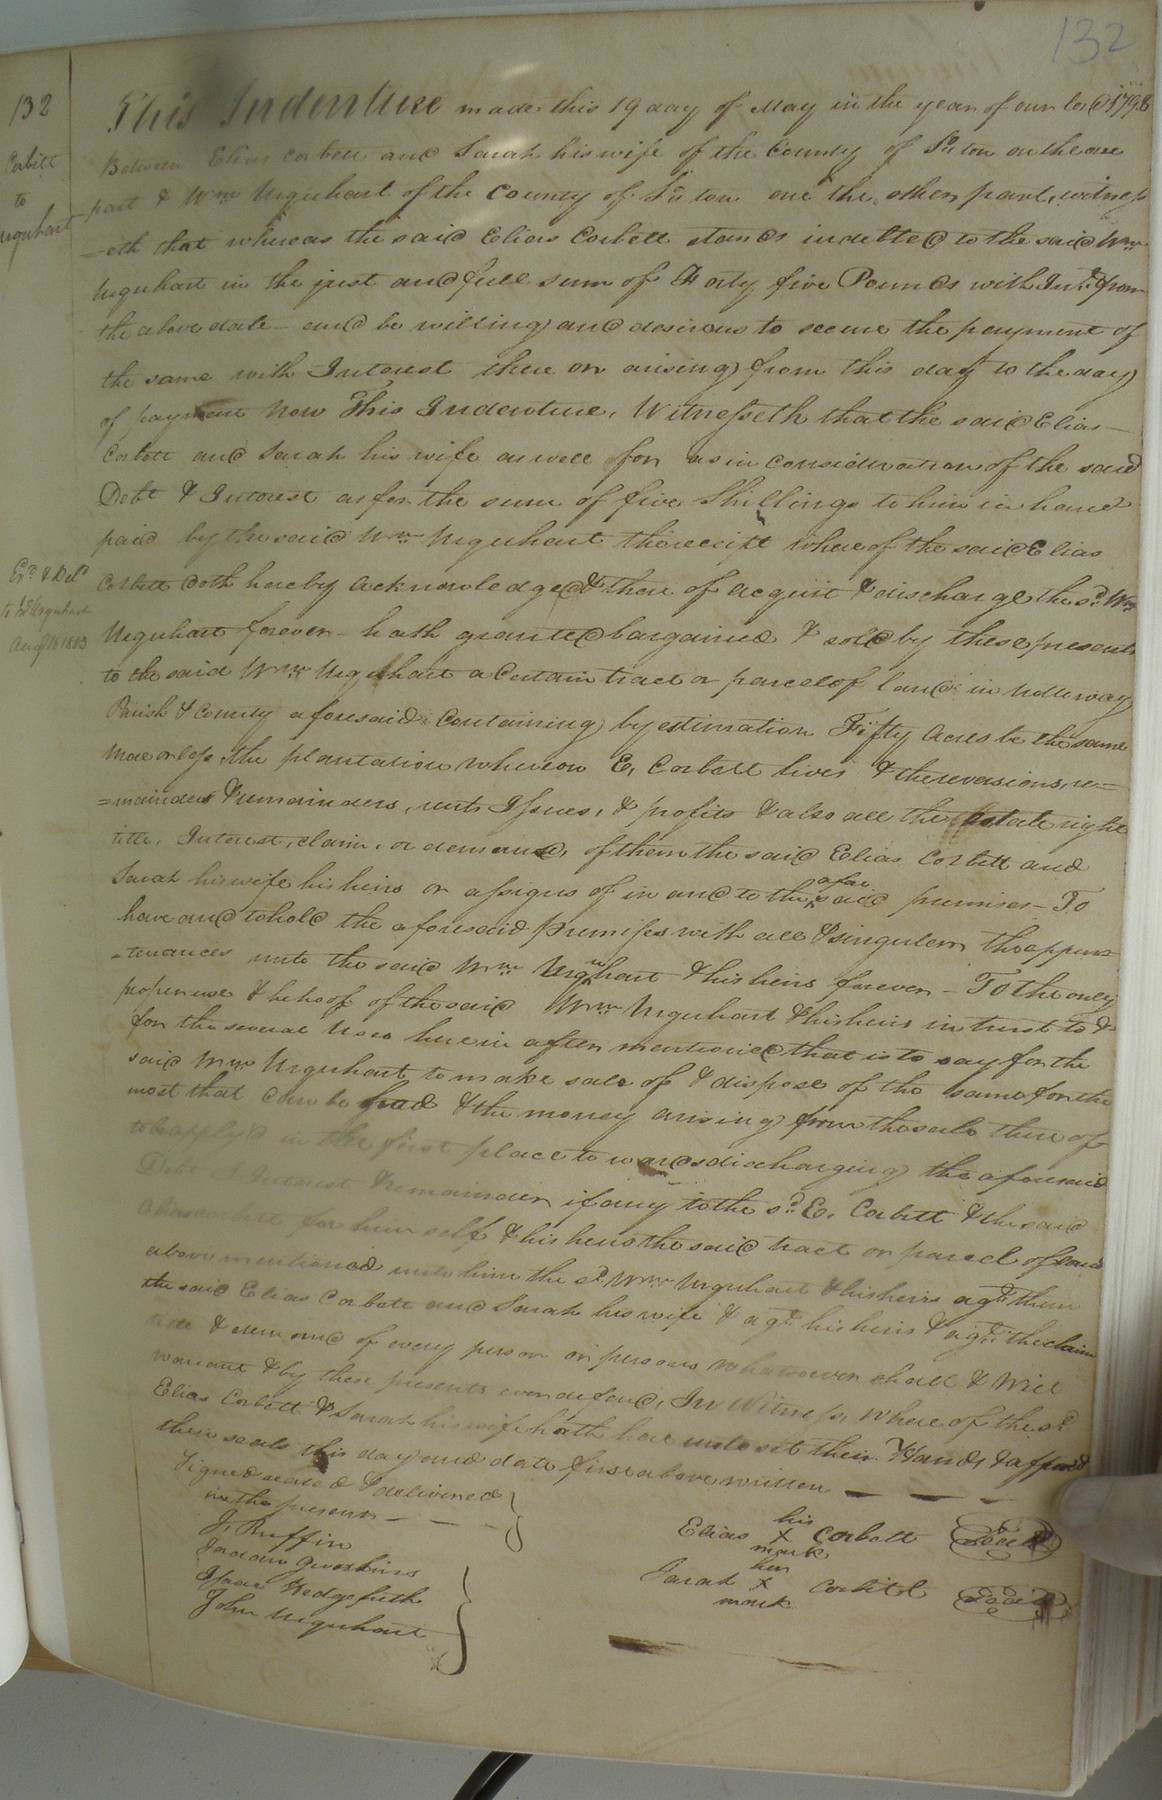 132
132
Corbitt
to
Urquhart
This Indenture made this 19 day of May in the year of our lord 1798
Between Elias Corbett and Sarah his wife of the County of So ton on the one
part & Wm Urquhart of the County of So ton one the other part, witness
=eth that whereas the said Elias Corbett stands indetted to the said Wm
Urquhart in the just and full sum of Forty five Pounds with Int. from
the above date - and be willing and desirous to secure the payment of
the same with Interest there on arising from this day to the day
of payment Now This Indenture, Witnesseth that the said Elias
Corbett and Sarah his wife as well for as in consideration of the said
Debt & Interest as for the sum of five Shillings to him in hand
paid by the said Wm Urquhart the receipt whereof the said Elias
Corbett doth hereby acknowledge & there of acquit & discharge the sd. Wm
Urquhart forever - hath granted bargained & sold by these presents
to the said Wm Urquhart a Certain tract or parcel of land in Nottoway
Parish & County aforesaid Containing by estimation Fifty Acres be the same
more or less, the plantation whereon E. Corbett lives & the revasions, re=
=mainder & remainders, rents Issues, & profits & also all the Estate right
title, Interest, claim, or demand, of them the said Elias Corbett and
Sarah his wife his heirs or assigns of in and to the afore said premises - To
have and to hold the aforesaid premises with all & singulern the appur=
=tenances unto the said Wm Urquhart & his heirs forever - To the only
proper use & behoof of the said Wm Urquhart & his heirs in trust to &
for the several Uses here in after mentioned that is to say for the
said Wm Urquhart to make sale of & dispose of the same for the
most that can be had & the money arising from the sale there of
to be apply'd in the first place to wards discharging the aforesaid
Debt & Interest & remainder if any to the sd. E. Corbett & the said
Elias Corbett for him self & his heirs the said tract or parcel of land
above mentioned unto him the sd Wm Urquhart & his heirs agt. them
the said Elias Corbett and Sarah his wife & agt. his heirs & agt. the claim
title & demand of every person or persons whatsoever shall & Will
warrant & by these presents ever defend, In Witness, Where of the sd
Elias Corbett & Sarah his wife hath here unto set their Hands & affixed
their seals this day and date first above written
Ex.d & Del.d
to Jno Urquhart
1803
Signed seald & delivered
in the presents
J. Ruffin
Jordan Judkins
Isaac Hedgpeth
John Urquhart
his
Elias X Corbett Seal
mark
her
Sarah X Corbitt Seal
mark